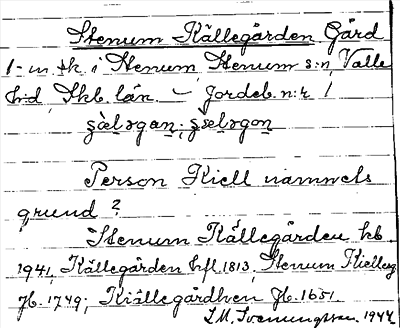 Stenum Källegården Gård
1 m tk i Stenum, Stenum s:n, Valle
h:d, Skb. län. – Jordeb. n:r 1
Person Kiell namnets
grund ?
Stenum Källegården kb
1941, Källegården hfl. 1813, Stenum Kielleg
Jb. 1749; Kiällegårdhen Jb. 1651.
1944